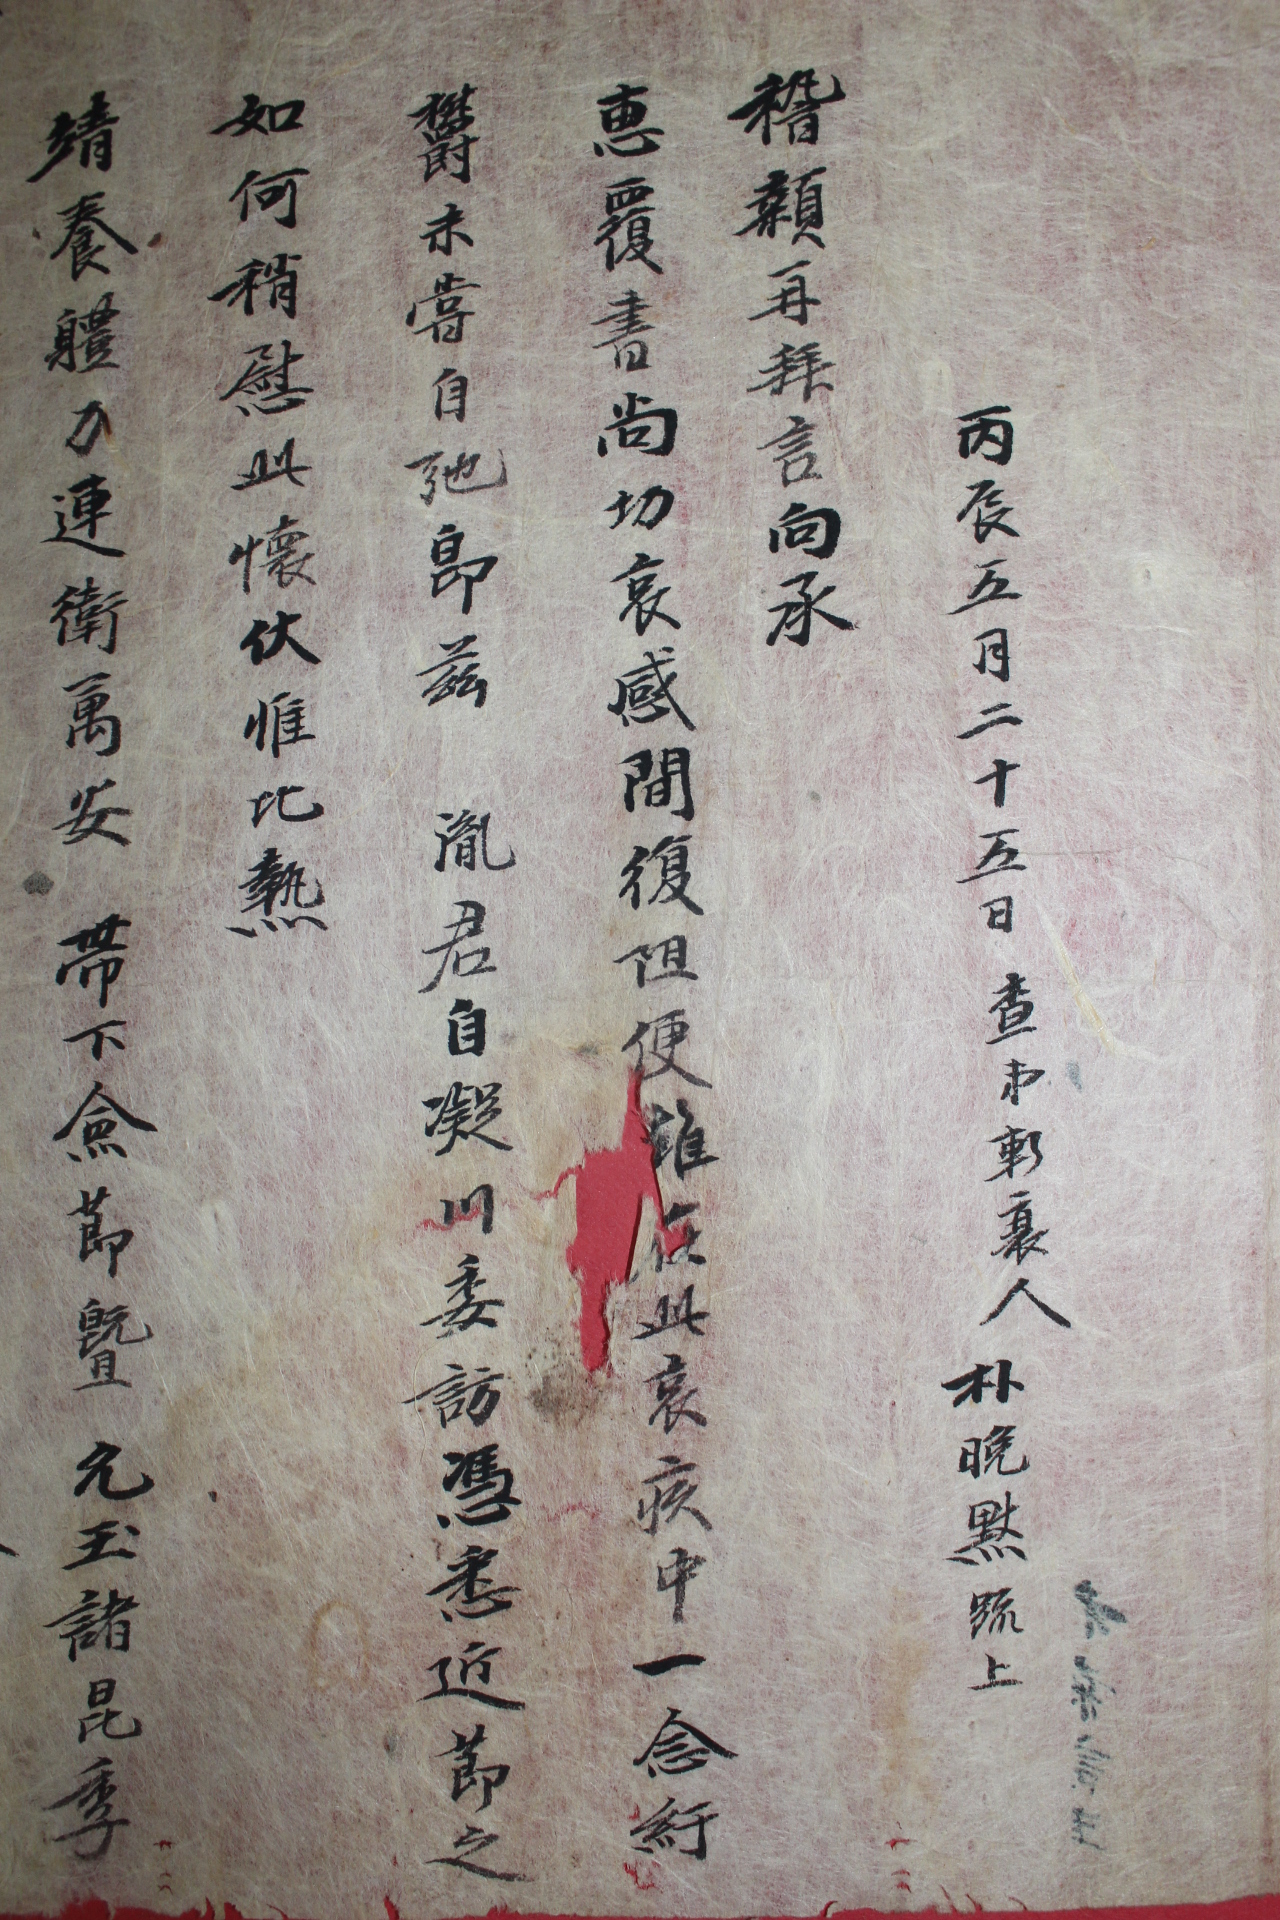 丙辰五月二十五日 査弟斬衰人 朴晩默 疏上
稽顙再拜言向承
惠覆書尚切哀感間復阻便雖在此哀疚中一念紆
鬱未嘗自弛卽茲 胤君自凝川委訪憑悉近節之
如何稍慰此懷伏惟比熱
靖養體力連衛萬安 帶下僉節曁 允玉諸昆季